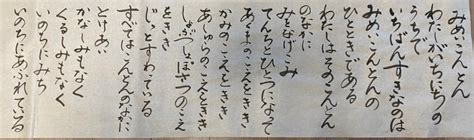 みめいこんとん
わたしがいちにちの
うちで
いちばんすきなのは
みめいこんとんの
ひとときである
わたしはそのこんとん
のなかに
みをなげこみ
てんちとひとつになって
あくまのこえをきき
かみのこえをききき
あしゅらのこえをきき
しょぶつしょぼさつのこえ
をきき
じっとすわっている
すべてはこんとんのなかに
とけあい
かなしみもなく
くるしみもなく
いのちにみち
いのちにあふれている